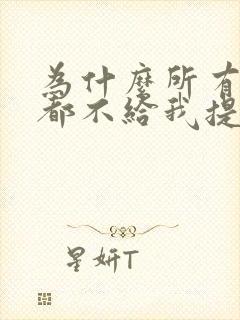 為什麼所有
都不給我提
星妍T